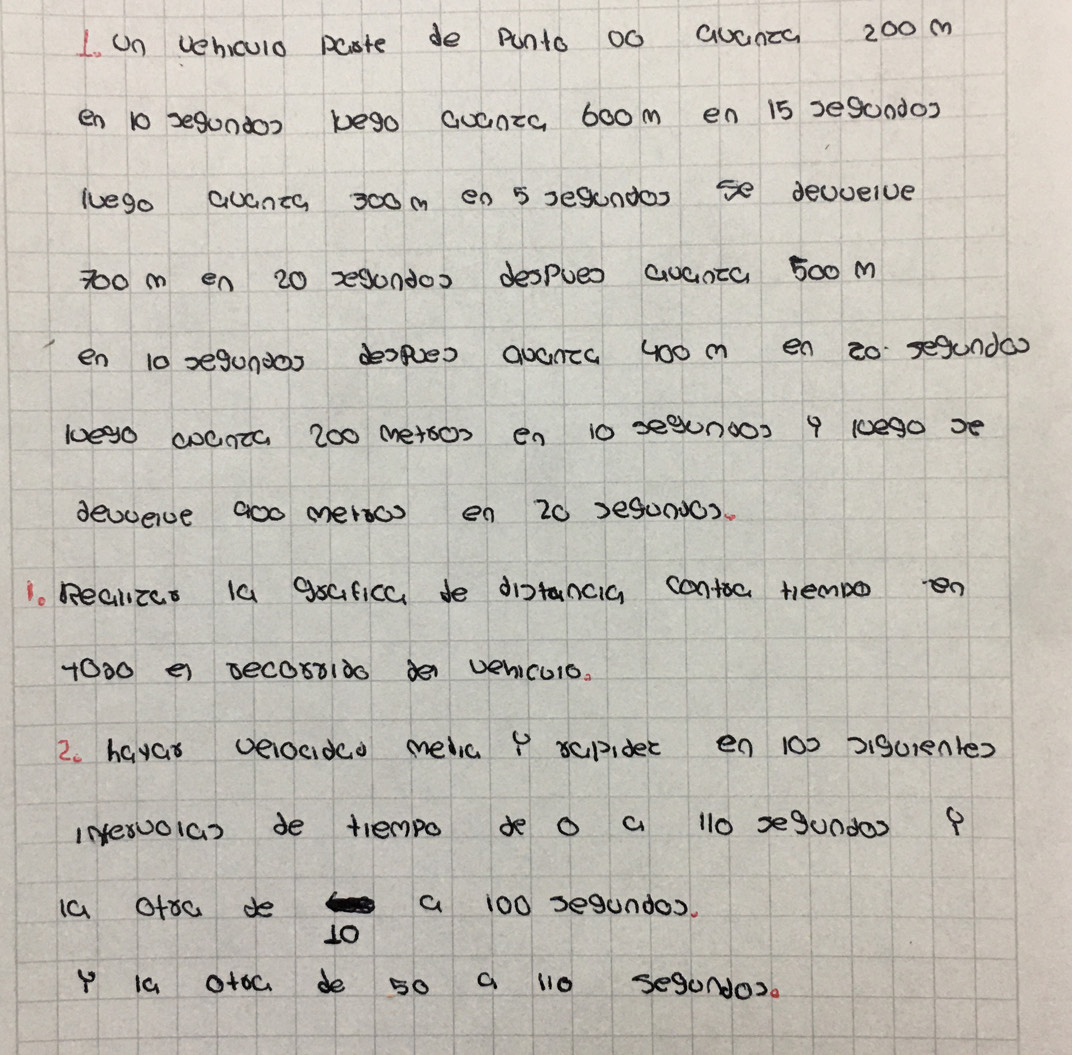 1. Un vehiculo parte de punto 00 avanza 200 m
en 10 segundos luego avanza 600 m en 15 segundos
luego avanza 300 m en 5 segundos se devuelve
700 m en 20 segundos despues avanza 500 m
en 10 segundos despues avanza 400 m en 20 segundos
luego avanza 200 metros en 10 segundos y luego se
devuelve 900 metros en 20 segundos.
1. Realizar la grafica de distancia contra tiempo en
todo el recorrido del vehiculo.
2. hayar velocidad media y rapidez en los siguientes
intervolas de tiempo de 0 a 110 segundos y
la otra de a 100 segundos.
10
y la otra de 50 a 110 segundos.